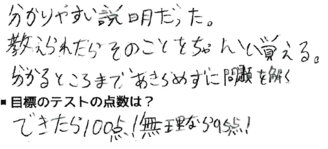 分かりやすい説明だった。
教えられたらそのことをちゃんと覚える。
分かるところまであきらめずに問題を解く
■ 目標のテストの点数は？
できたら100点！無理なら95点！